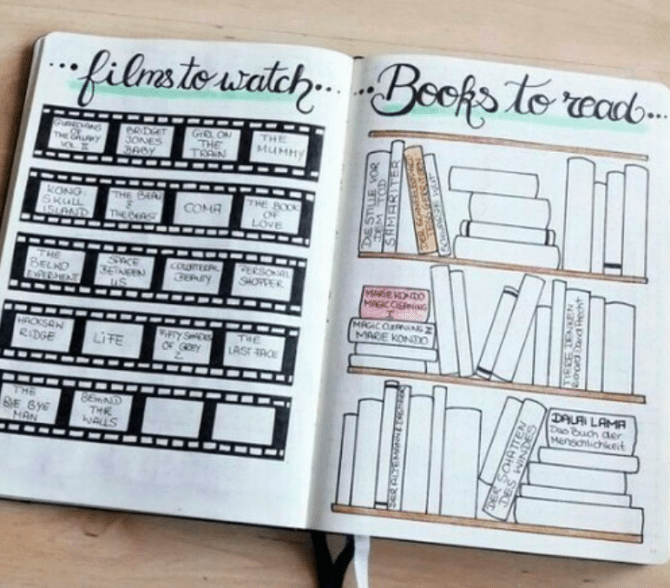 ...films to watch...
GUARDIANS
OF
THE GALAXY
VOL II
BRIDGET
JONES
BABY
GIRL ON
THE
TRAIN
THE
MUMMY
KONG:
SKULL
ISLAND
THE BEAUTY
&
THE BEAST
COMA
THE BOOK
OF
LOVE
THE
BELKO
EXPERIMENT
SPACE
BETWEEN
US
COLLATERAL
BEAUTY
PERSONAL
SHOPPER
HACKSAW
RIDGE
LIFE
FIFTY SHADES
OF GREY
2
THE
LAST FACE
THE
BYE BYE
MAN
BEHIND
THE
WALLS
...Books to read...
DIE STILLE VOR
DEM TOD
SAMARITER
SCHWARZE WUT
MARIE KONDO
MAGIC CLEANING
I
MAGIC CLEANING 2
MARIE KONDO
TIERE DENKEN
Richard David Precht
DER ALTEMANN & DAS MEER
DER SCHATTEN
DES WINDES
DALAI LAMA
Das Buch der
Menschlichkeit